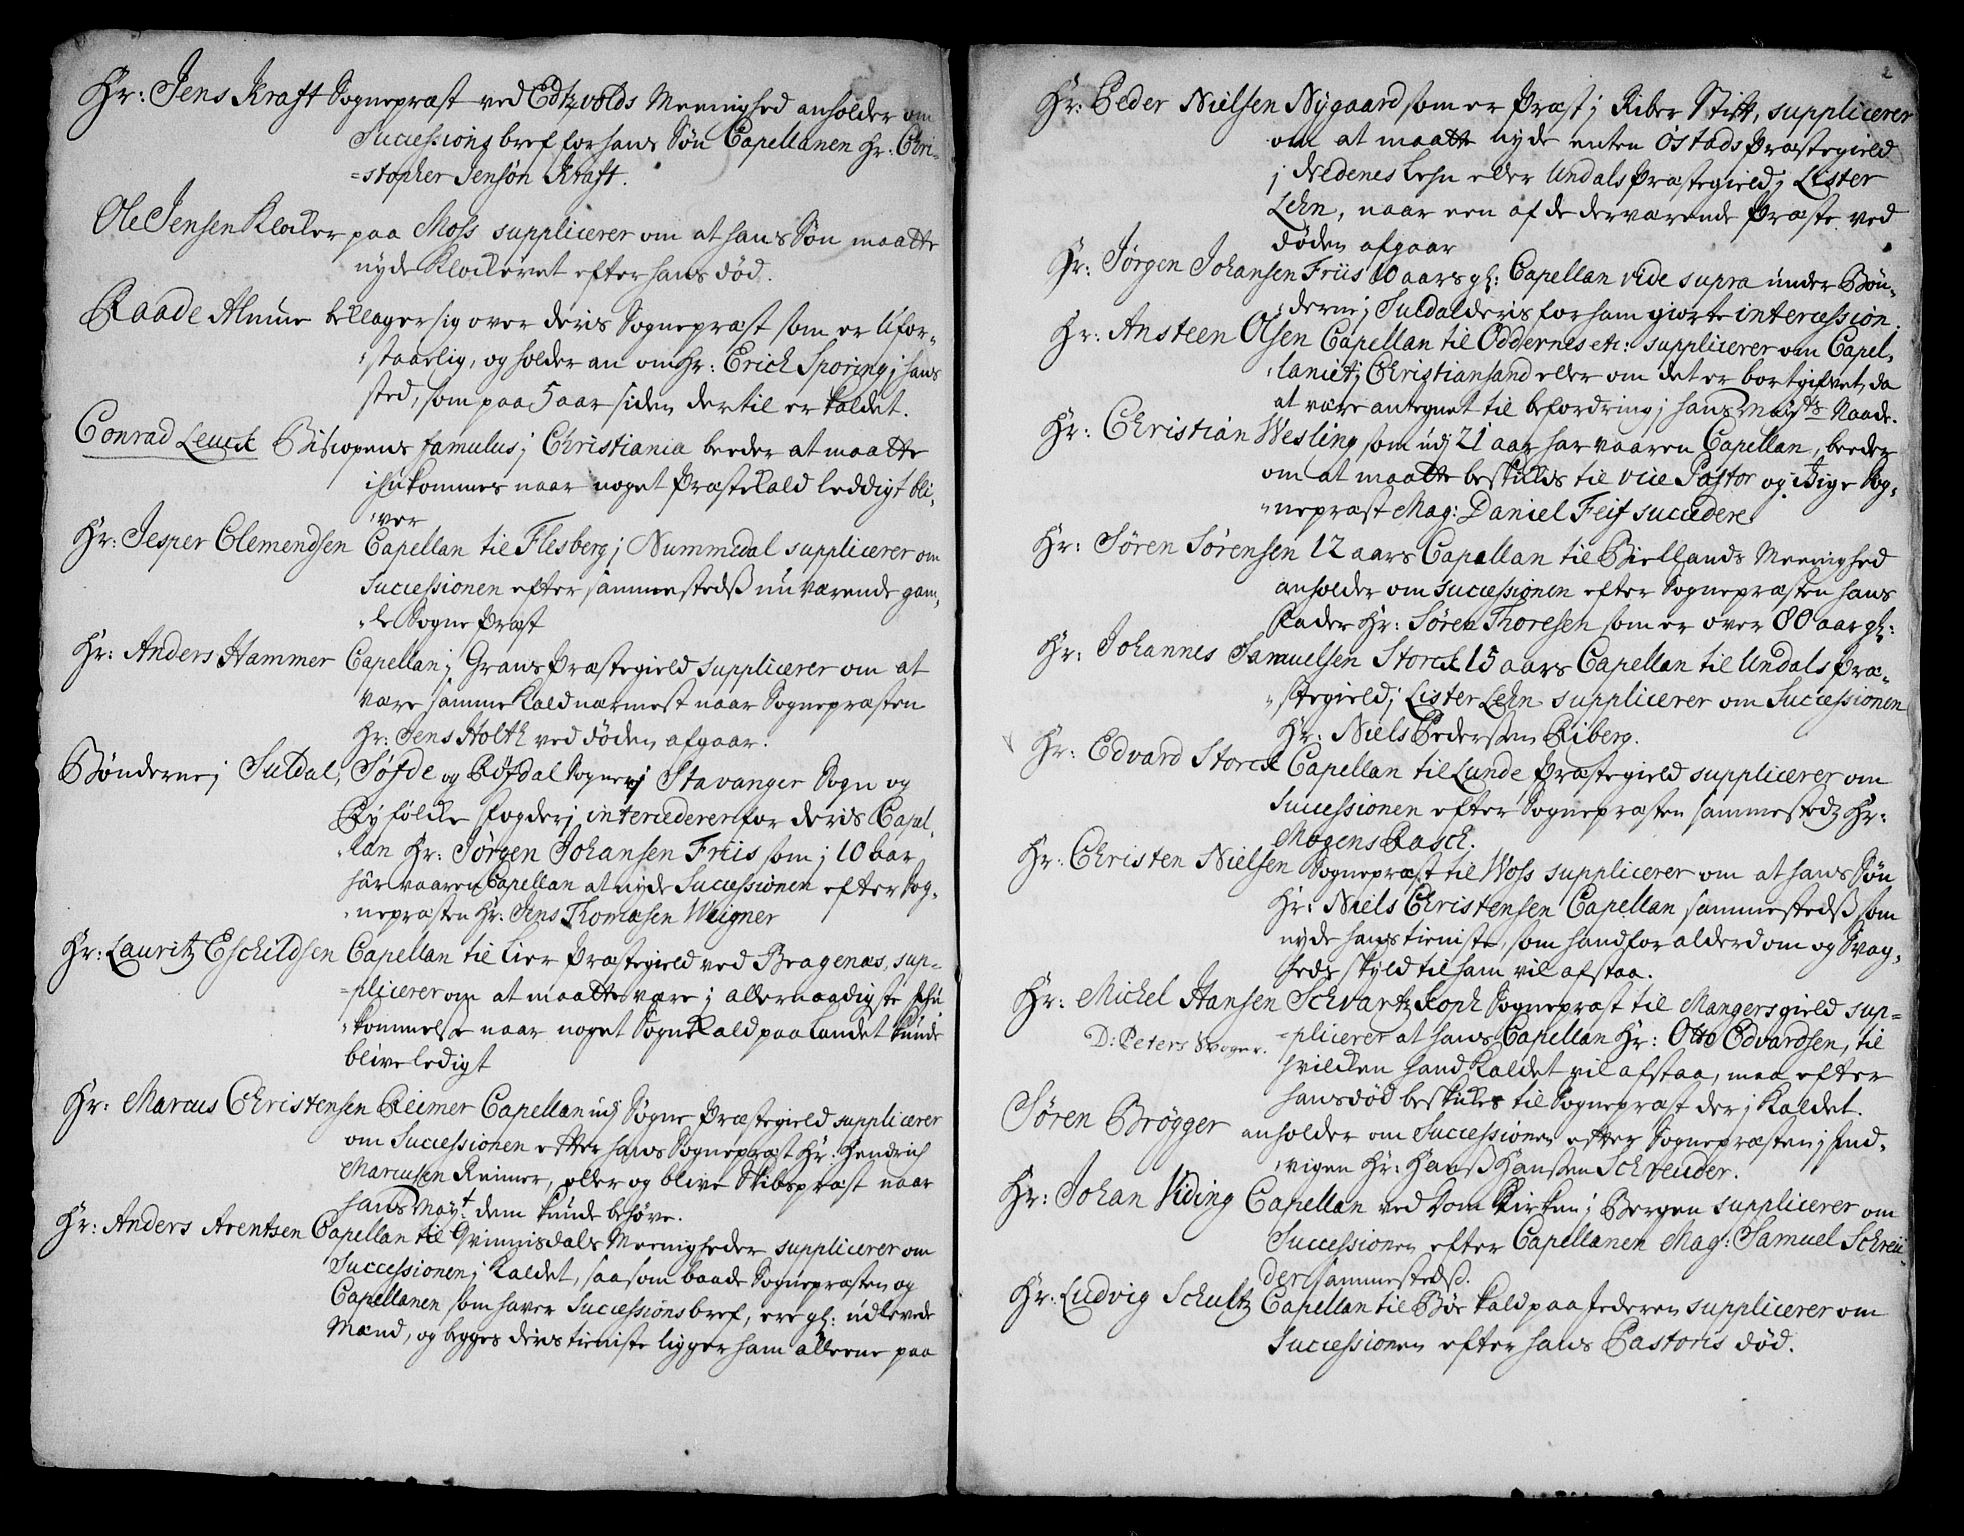 Hr: Jens Kraft Sognepræst ved Edtzvolds Meenighed anholder om
Successions bref for hans Søn Capellanen Hr: Chri-
=stopher Jensøn Kraft.
Ole Jensen Klocker paa Moss supplicerer om at hans Søn maatte
nyde Klockeret efter hans død.
Raade Almue beklager sig over deris Sognepræst som er Ufor-
staarlig, og holder an om Hr: Erich Sporing j hans
sted, som paa 5 aar siden dertil er kaldet.
Conrad Leuch Biskopens famulus j Christiania beeder at maatte
ihukommes naar noget Præste Kald leddigt bli-
ver
Hr: Jesper Clemendsen Capellan til Flesberg j Nummedal supplicerer om
Successionen efter sammestedss nu værende gam-
le Sogne Præst
Hr: Anders Hammer Capellan j Grans Præstegield supplicerer om at
være samme Kald nærmest naar Sognepræsten
Hr: Jens Holth ved døden afgaar.
Bønderne j Suldal, Søfde og Røfdal Sogner j Stavanger Sogn og
Ryfölcke fogderj intercederer for deris Capel-
lan Hr: Jørgen Johansen Friis som j 10 aar
har vaaren Capellan at nyde Successionen efter Sog-
nepræsten Hr: Jens Thomesen Weigner
Hr: Lauritz Eschildsen Capellan til Lier Præstegield ved Bragenæs, sup-
=plicerer om at maatte være j allernaadigste ihu
kommelse naar noget Sogne Kald paa Landet kunde
blive ledigt
Hr: Marcus Christensen Reimer Capellan udj Sogne Præstegield supplicerer
om Successionen efter hans Sognepræst Hr: Hendrich
Marcussen Reimer, eller og blive Skibspræst naar
hans Mayt: dem kunde behøve.
Hr: Anders Arentsen Capellan til Qvinnisdals Meenigheder supplicerer om
Successionen j Kaldet, saasom baade Sognepræsten og
Capellanen som haver Successions bref, ere gl: udlevede
Mænd, og begges deris tieniste ligger ham alleene paa
2
Hr: Peder Nielsen Nygaard som er Præst j Riber Stift, supplicerer
om at maatte nyde enten Östads Præstegield
j Nedenes Lehn eller Undals Præstegield j Lister
Lehn, naar een af de derværende Præste ved
døden afgaar
Hr: Jørgen Johansen Friis 10 aars gl: Capellan vide supra under Bøn-
derne j Suldal deris for ham giorte intercession.
Hr: Ansteen Olsen Capellan til Oddernes etc: supplicerer om Capel-
laniet j Christiansand eller om det er bortgifvet, da
at være antegnet til befordring j hans Mayts Naade.
Hr: Christian Wesling som udj 21 aar har vaaren Capellan, beeder
om at maatte beskikkis til vice Pastor og Hige Sog-
nepræst Mag: Daniel Feif succedere.
Hr: Søren Sørensen 12 aars Capellan til Biellands Meenighed
anholder om Successionen efter Sognepræsten hans
Fader Hr: Søren Thoresen som er over 80 aar gl:
Hr: Johannes Samuelsen Storck 15 aars Capellan til Undals Præ-
stegield j Lister Lehn supplicerer om Successionen
Hr: Niels Pedersen Riberg.
Hr: Edvard Storck Capellan til Lunde Præstegield supplicerer om
Successionen efter Sognepræsten sammestedz Hr:
Mogens Rasch.
Hr: Christen Nielsen Sognepræst til Woss supplicerer om at hans Søn
Hr: Niels Christensen Capellan sammestedss som
nyde hans tieniste, som hand for alderdom og Svag-
heds skyld til ham vil afstaa.
Hr: Michel Hansen Schvartzkoph Sognepræst til Mangers gield sup-
D: Peters Svoger.
=plicerer at hans Capellan Hr: Otto Edvardsen, til
hvilcken hand Kaldet vil afstaa, maa efter
hans død beskikkes til Sognepræst der j Kaldet.
Søren Brøgger anholder om Successionen efter Sognepræsten j Ind-
vigen Hr: Hanss Hanssen Schreuder.
Hr: Johan Viding Capellan ved Dom Kirken j Bergen supplicerer om
Successionen efter Capellanen Mag: Samuel Schreu
der sammestedss.
Hr: Ludvig Schultz Capellan til Böe Kald paa Jederen supplicerer om
Successionen efter hans Pastoris død.